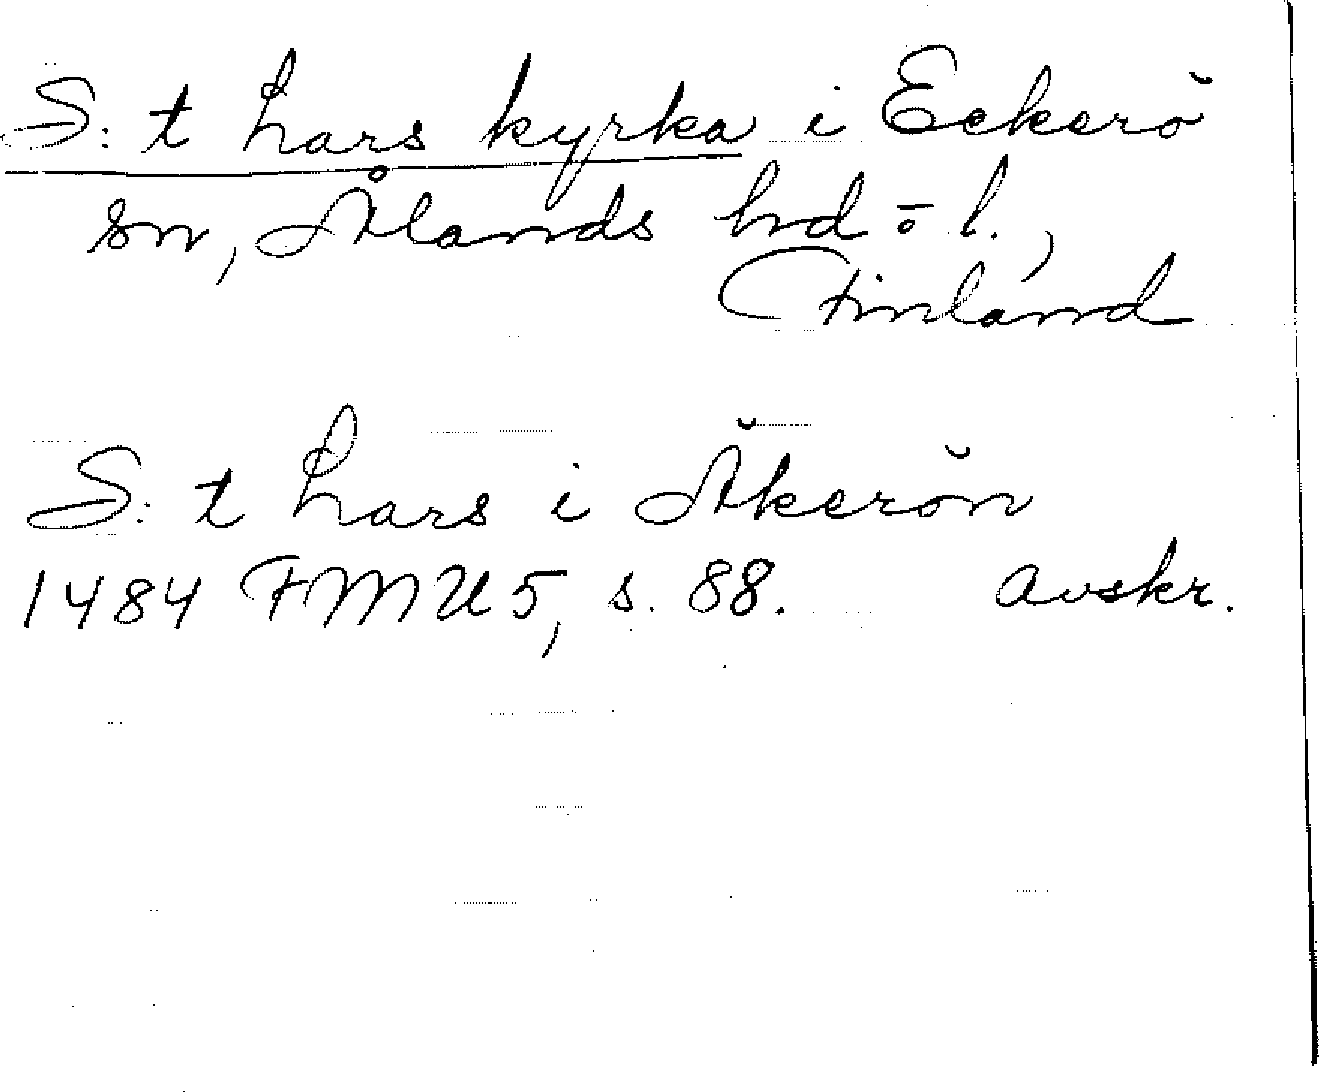 S:t Lars kyrka i Eckerö
sn, Ålands hd o l.,
Finland
S:t Lars i Äkerön
1484 FMU 5, s. 88. Avskr.